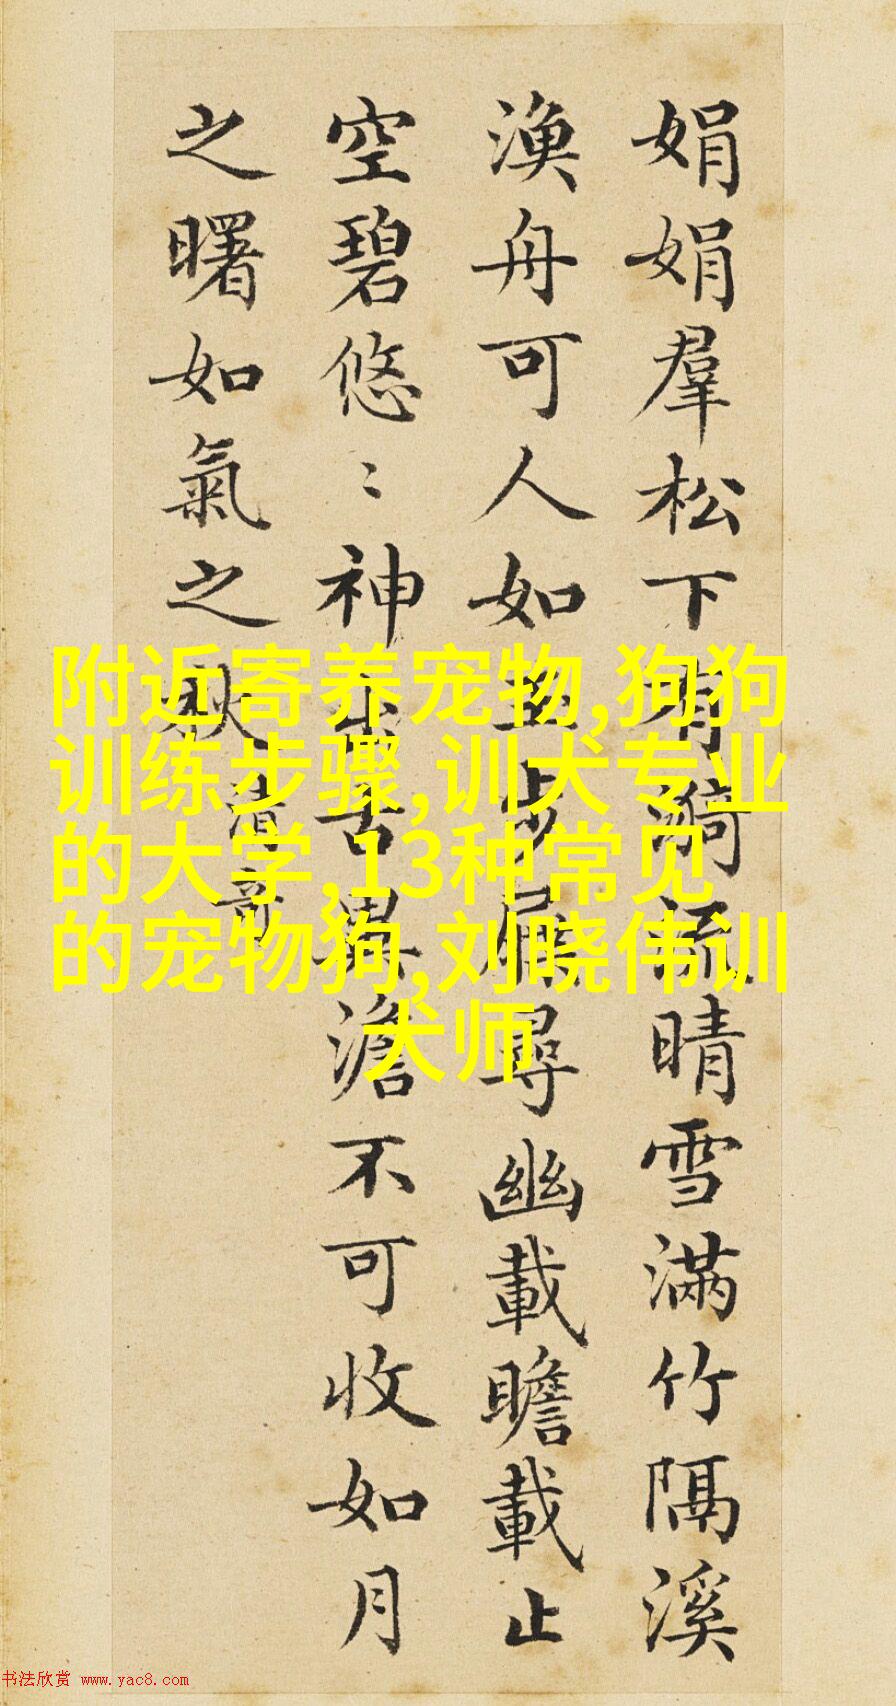 娟娟羣松下有漪流晴雪滿竹隔溪
漁舟可人如玉步屧尋幽載瞻載止
空碧悠〻神出古異澹不可收如月
之曙如氣之秋
清奇
附近寄养宠物,狗狗
训练步骤,训犬专业
的大学,13种常见
的宠物狗,刘晓伟训
犬师
书法欣赏 www.yac8.com